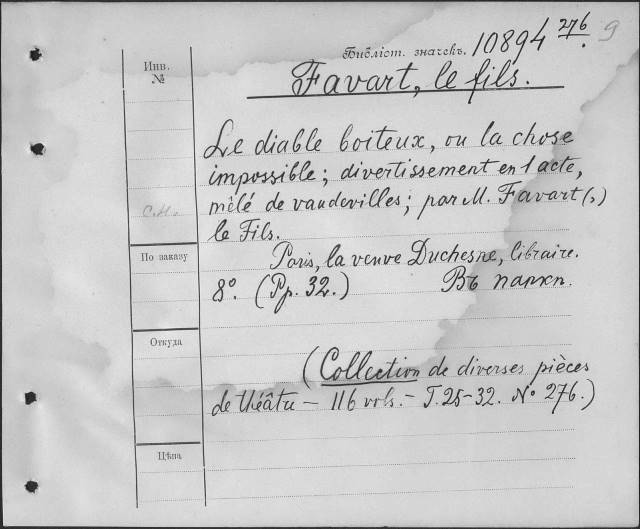 Библіот. значекъ. 10894 276. 9
Инв. №
Favart, le fils.
Le diable boiteux, ou la chose
impossible; divertissement en 1 acte,
mêlé de vaudevilles; par M. Favart (,)
С.Н.
le Fils.
По заказу
Paris, la veuve Duchesne, libraire.
8º. (Pp. 32.) Въ паркп.
Откуда
(Collection de diverses pièces
de théâtre – 116 vols. – T. 25-32. Nº 276.)
Цѣна